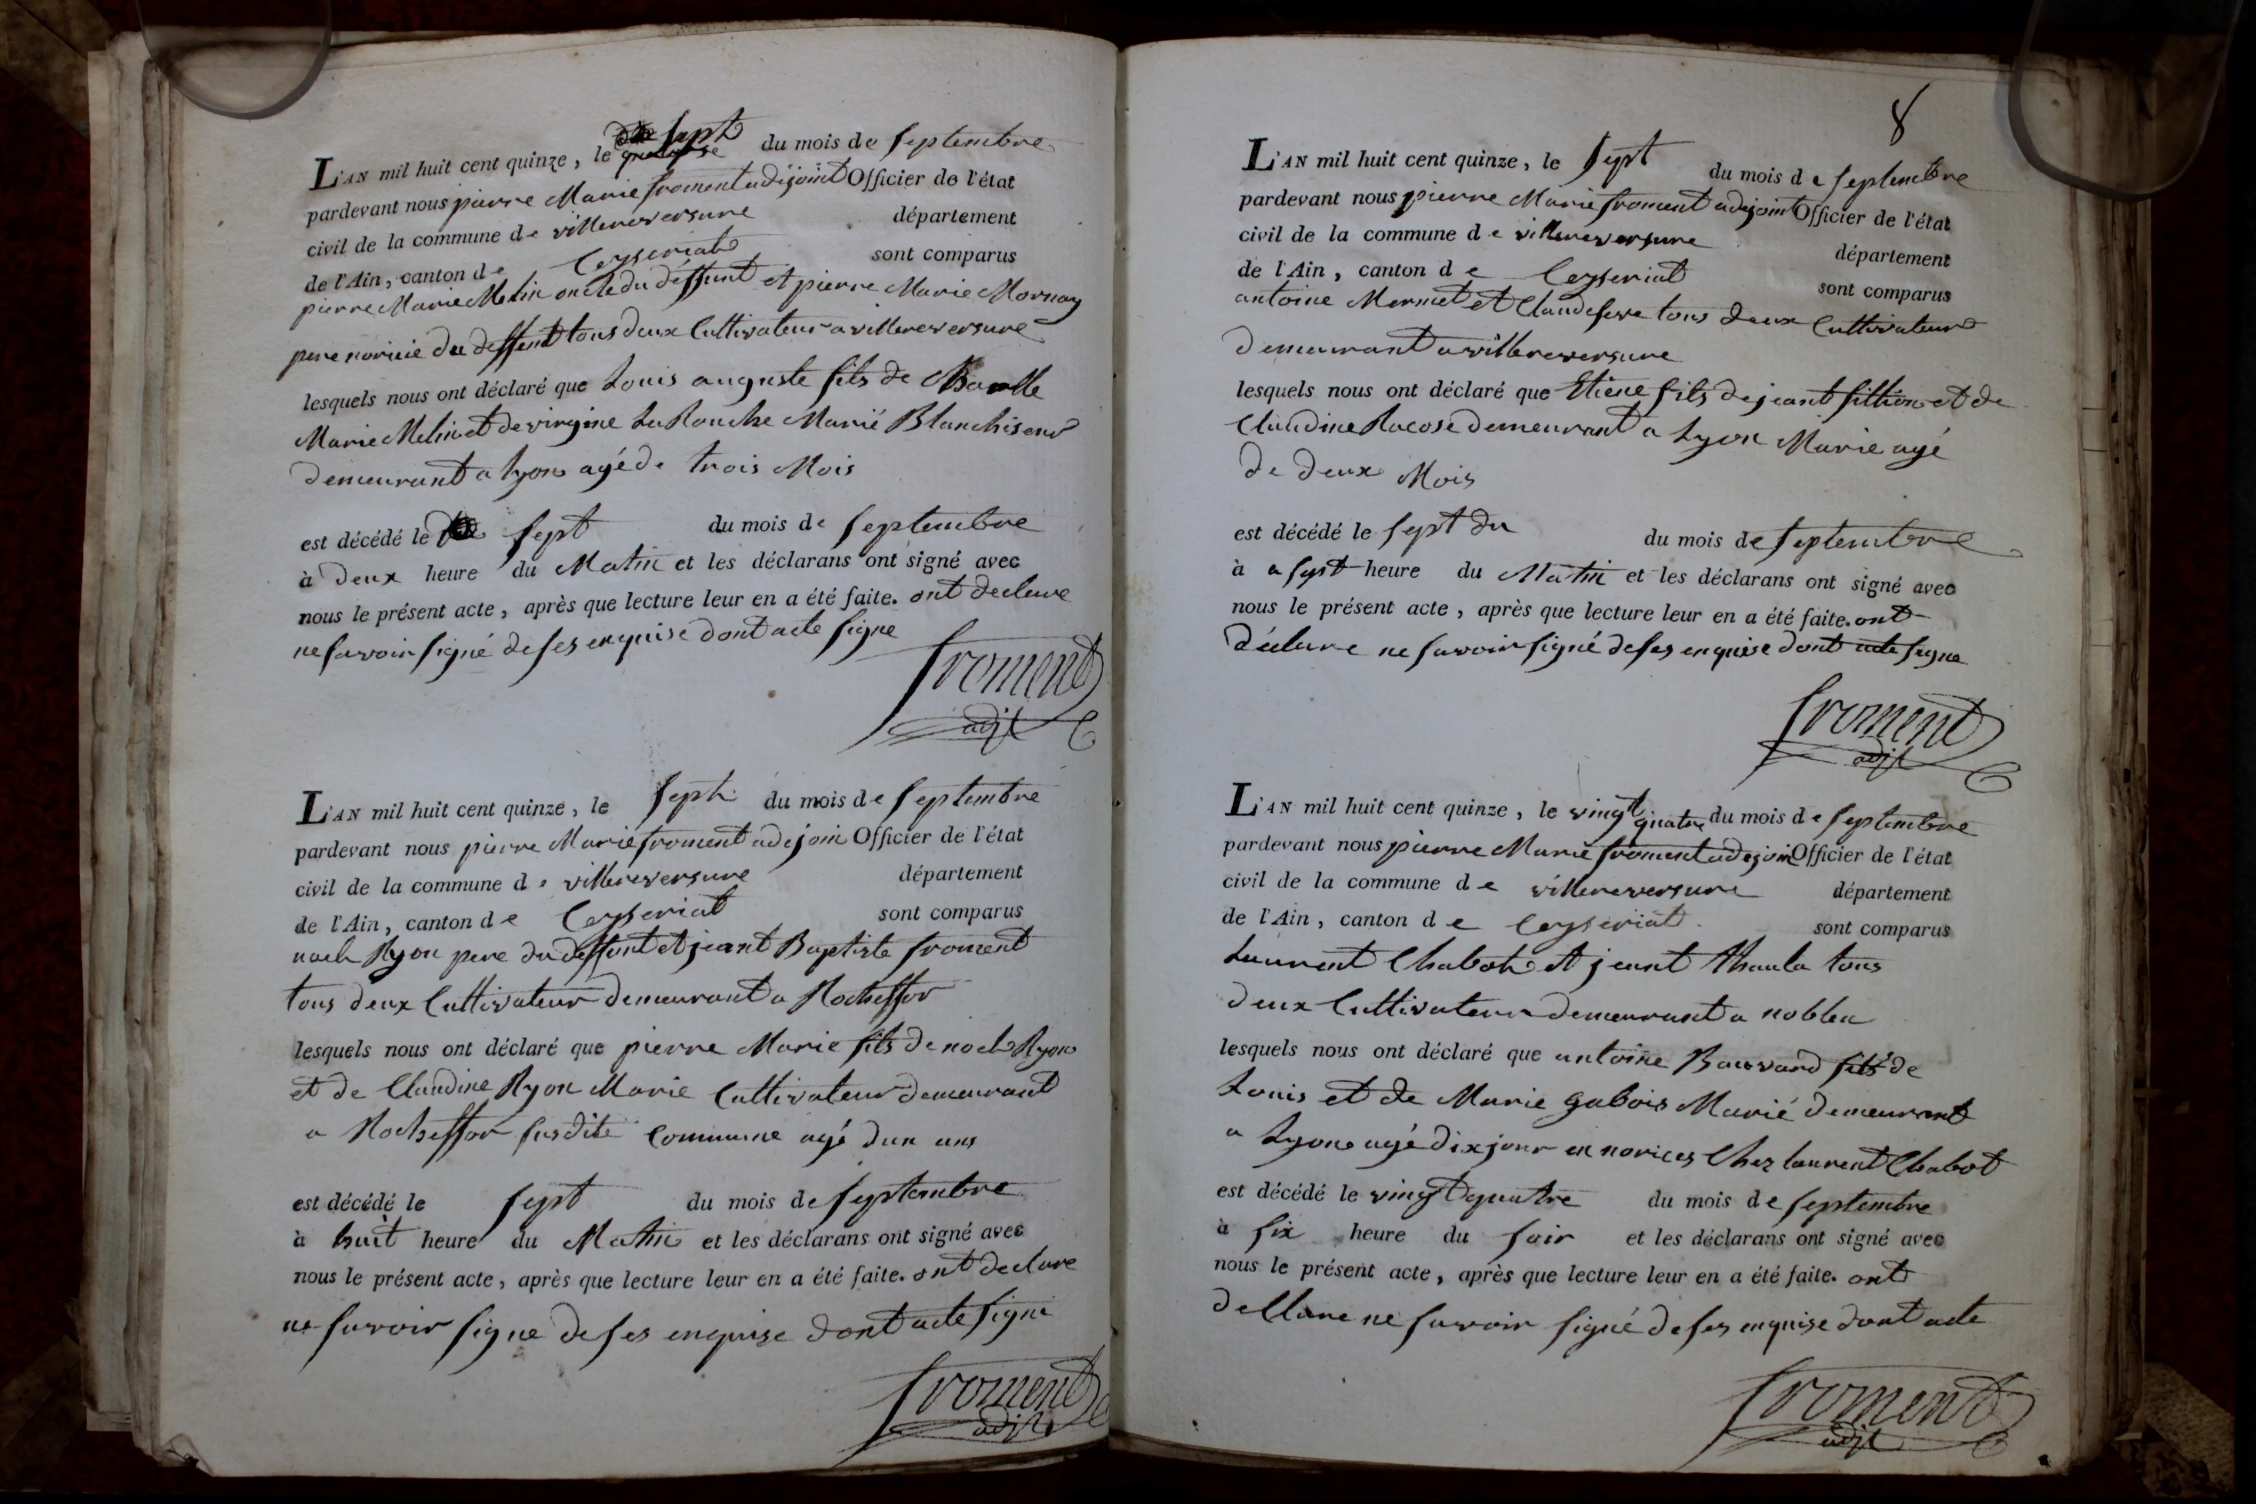 L'AN mil huit cent quinze, le sept du mois de septembre
pardevant nous pierre Marie froment adijoint Officier de l'état
civil de la commune de villereversure département
de l'Ain, canton de Ceyseriat sont comparus
pierre Marie Melin oncle du deffunt et pierre Marie Mornay
pere noricié du deffent tous deux Cultivateur a villereversure
lesquels nous ont déclaré que Louis auguste fils de
Marie Melin et de virgine La Rouche Marié Blanchiseur
demeurant a lyon agé de trois Mois
est décédé le sept du mois de septembre
à deux heure du Matin et les déclarans ont signé avec
nous le présent acte, après que lecture leur en a été faite. ont declare
ne savoir signé de ses enquise dont acte signe
froment
adjt
L'AN mil huit cent quinze, le sept du mois de septembre
pardevant nous pierre Marie froment adejoin Officier de l'état
civil de la commune de villereversure département
de l'Ain, canton de Ceyseriat sont comparus
noel Ryon pere du deffont et jeant Baptiste froment
tous deux Cultivateur demeurant a Rocheffor
lesquels nous ont déclaré que pierre Marie fils de noel Ryon
et de Claudine Ryon Marie Cultivateur demeurant
a Rocheffor susdite Commune agé dun ans
est décédé le sept du mois de septembre
à huit heure du Matin et les déclarans ont signé avec
nous le présent acte, après que lecture leur en a été faite. ont declare
ne savoir signe de ses enquise dont acte signe
froment
adjt
8
L'AN mil huit cent quinze, le sept du mois de septembre
pardevant nous pierre Marie froment adejoint Officier de l'état
civil de la commune de villereversure département
de l'Ain, canton de Ceyseriat sont comparus
antoine Mermet et Claude feve tous deux Cultivateur
demeurant a villereversure
lesquels nous ont déclaré que Etiene fils de jeant fillion et de
Claudine Racose demeurant a Lyon Marie agé
de deux Mois
est décédé le sept du du mois de septembre
à a sept heure du Matin et les déclarans ont signé avec
nous le présent acte, après que lecture leur en a été faite. ont
déclare ne savoir signé de ses enquise dont acte signe
froment
adjt
L'AN mil huit cent quinze, le vingt quatre du mois de septembre
pardevant nous pierre Marie froment adejoin Officier de l'état
civil de la commune de villereversure département
de l'Ain, canton de Ceyseriat sont comparus
Laurent Chabot et jeant thaula tous
deux Cultivateur demeurant a noblen
lesquels nous ont déclaré que antoine Bouvard fils de
Louis et de Marie gabois Marié demeurant
a Lyon agé dix jour en norices Chez laurent Chabot
est décédé le vingt quatre du mois de septembre
à six heure du soir et les déclarans ont signé avec
nous le présent acte, après que lecture leur en a été faite. ont
declare ne savoir signé de ses enquise dont acte
froment
adjt